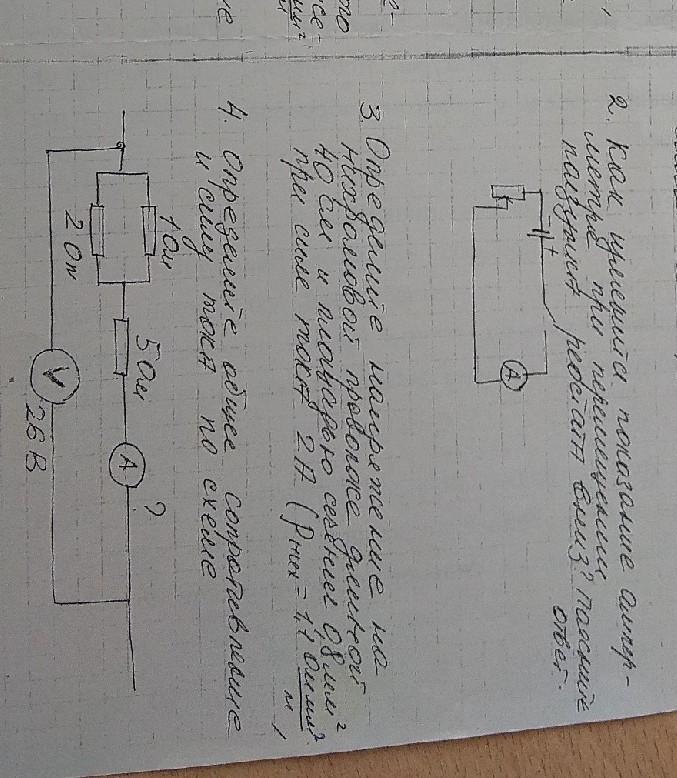 2. Как изменится показание ампер-
метра при перемещении
ползунка реостата вниз? Поясните
ответ.
+
A
3. Определите напряжение на
нихромовой проволоке длиной
40 см и площадью сечения 0,8 мм²
при силе тока 2А. (ρних = 1,1 Ом·мм²/м)
4. Определите общее сопротивление
и силу тока по схеме
1 Ом
2 Ом
5 Ом
A
?
V
26 В